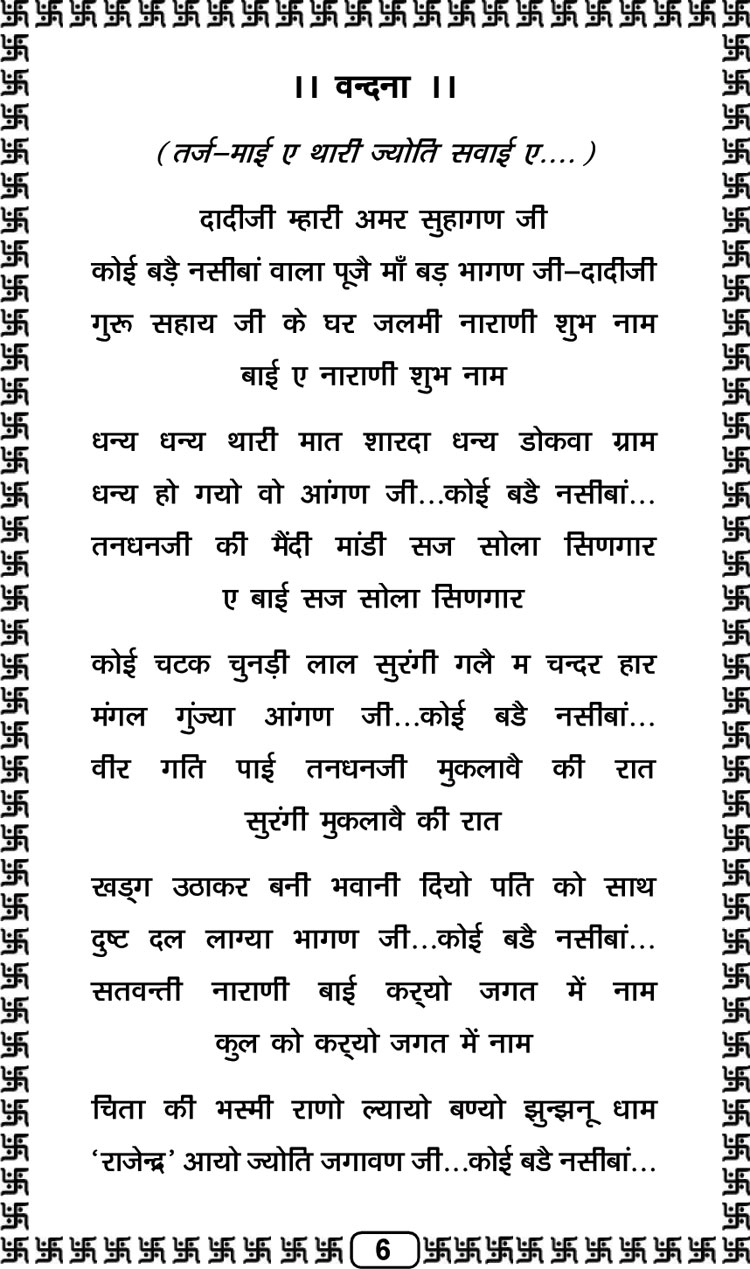 ।। वन्दना ।।
(तर्ज–माई ए थारी ज्योति सवाई ए....)
दादीजी म्हारी अमर सुहागण जी
कोई बड़ै नसीबां वाला पूजै माँ बड़ भागण जी–दादीजी
गुरू सहाय जी के घर जलमी नाराणी शुभ नाम
बाई ए नाराणी शुभ नाम
धन्य धन्य थारी मात शारदा धन्य डोकवा ग्राम
धन्य हो गयो वो आंगण जी...कोई बडै नसीबां...
तनधनजी की मैंदी मांडी सज सोला सिणगार
ए बाई सज सोला सिणगार
कोई चटक चुनड़ी लाल सुरंगी गलै म चन्दर हार
मंगल गुंज्या आंगण जी...कोई बडै नसीबां...
वीर गति पाई तनधनजी मुकलावै की रात
सुरंगी मुकलावै की रात
खड्ग उठाकर बनी भवानी दियो पति को साथ
दुष्ट दल लाग्या भागण जी...कोई बडै नसीबां...
सतवन्ती नाराणी बाई कर्‌यो जगत में नाम
कुल को कर्‌यो जगत में नाम
चिता की भस्मी राणो ल्यायो बण्यो झुन्झनू धाम
‘राजेन्द्र’ आयो ज्योति जगावण जी...कोई बडै नसीबां...
6